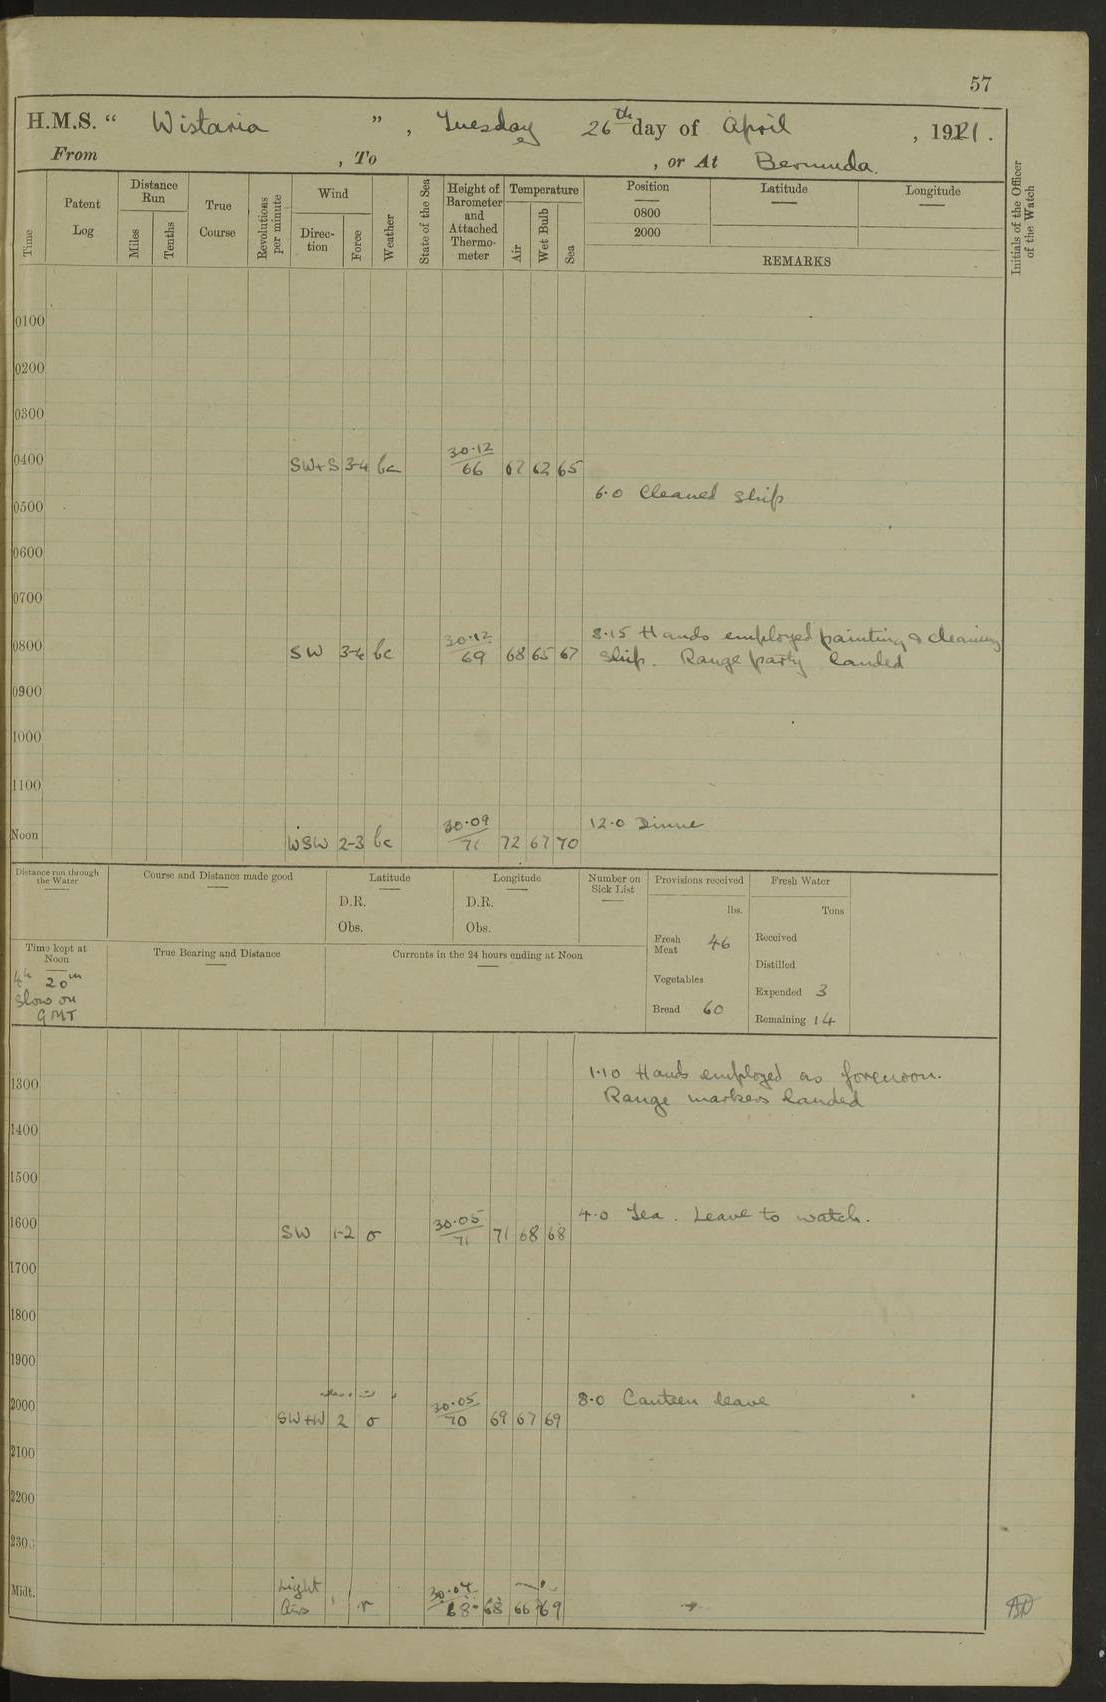 57
H.M.S. “ Wistaria ” , Tuesday 26th day of April , 1921.
From , To , or At Bermuda.
Time
Patent Log
Distance Run
Miles
Tenths
True Course
Revolutions per minute
Wind
Direc-tion
Force
Weather
State of the Sea
Height of Barometer and Attached Thermo-meter
Temperature
Air
Wet Bulb
Sea
Position
0800
2000
Latitude
Longitude
REMARKS
Initials of the Officer of the Watch
0100
0200
0300
0400 SW+S 3-4 bc 30.12 66 67 62 65
6.0 Cleaned ship
0500
0600
0700
8.15 Hands employed painting & cleaning
0800 SW 3-4 bc 30.12 69 68 65 67 ship. Range party landed
0900
1000
1100
12.0 Dinner
Noon WSW 2-3 bc 30.09 71 72 67 70
Distance run through the Water
Course and Distance made good
Latitude
D.R.
Obs.
Longitude
D.R.
Obs.
Number on Sick List
Provisions received
lbs.
Fresh Meat 46
Vegetables
Bread 60
Fresh Water
Tons
Received
Distilled
Expended 3
Remaining 14
Time kept at Noon
4h 20m
slow on
GMT
True Bearing and Distance
Currents in the 24 hours ending at Noon
1.10 Hands employed as forenoon.
1300
Range markers landed
1400
1500
4.0 Tea. Leave to watch.
1600 SW 1-2 o 30.05 71 71 68 68
1700
1800
1900
8.0 Canteen leave
2000 SW+W 2 o 30.05 70 69 67 69
2100
2200
230
Midt. Light Airs r 30.04 68 68 66 69